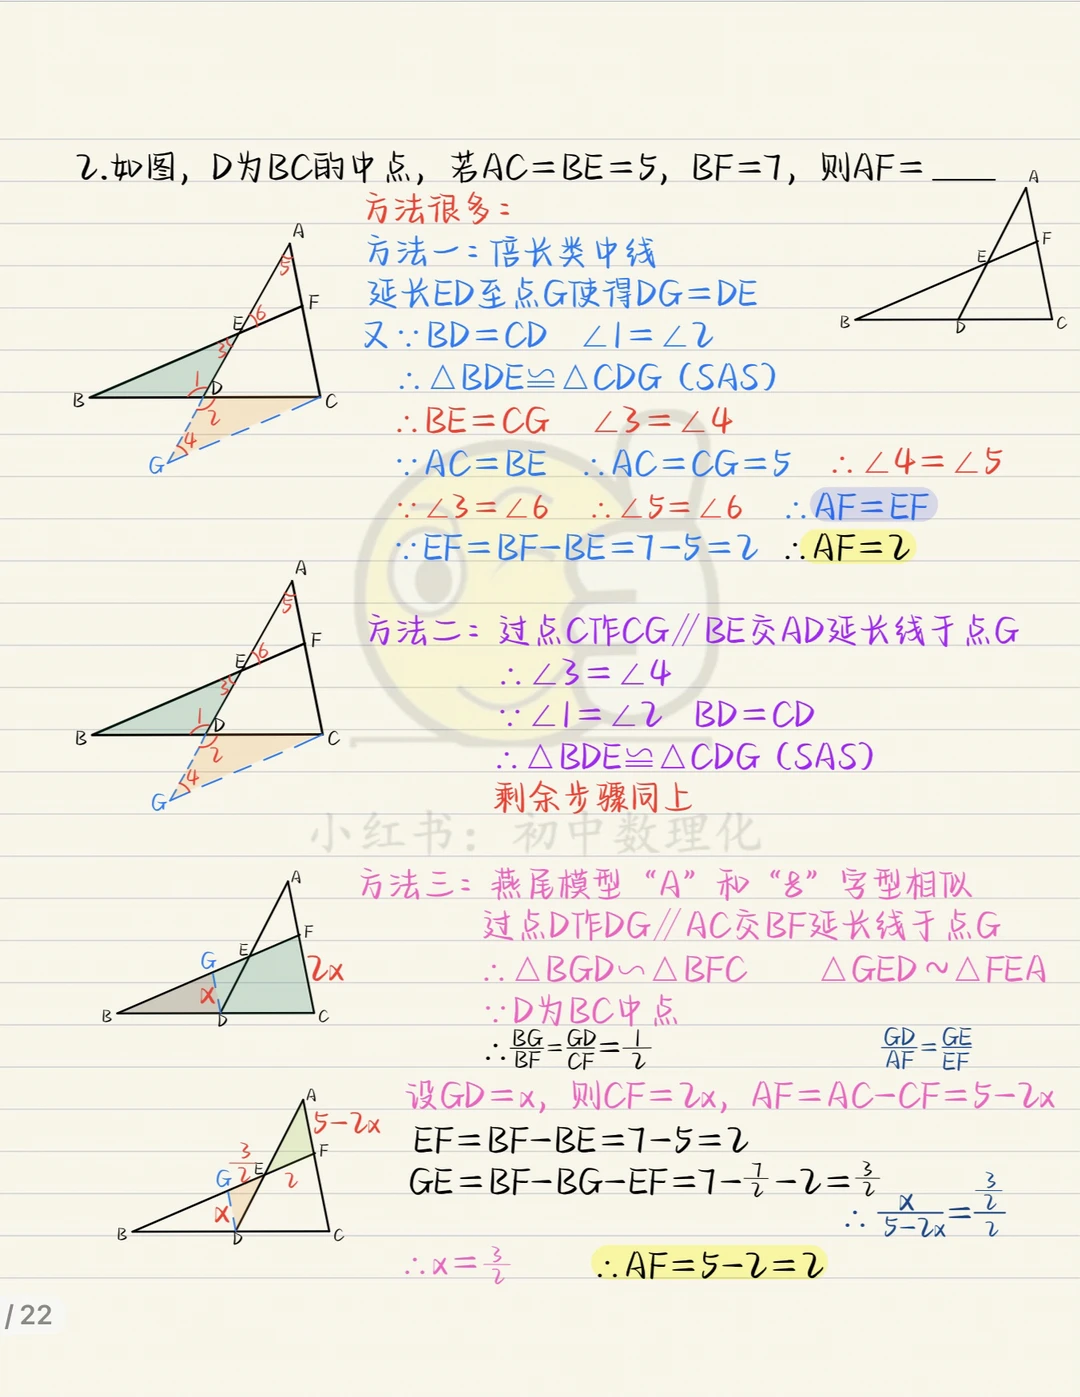 2.如图，D为BC的中点，若AC=BE=5，BF=7，则AF=____
方法很多：
方法一：倍长类中线
延长ED至点G使得DG=DE
又∵BD=CD ∠1=∠2
∴△BDE≌△CDG（SAS）
∴BE=CG ∠3=∠4
∵AC=BE ∴AC=CG=5 ∴∠4=∠5
∵∠3=∠6 ∴∠5=∠6 ∴AF=EF
∵EF=BF-BE=7-5=2 ∴AF=2
A
F
E
B
D
C
A
5
F
E
6
3
B
1
D
C
2
4
G
方法二：过点C作CG∥BE交AD延长线于点G
∴∠3=∠4
∵∠1=∠2 BD=CD
∴△BDE≌△CDG（SAS）
剩余步骤同上
A
5
F
E
6
3
B
1
D
C
2
4
G
小红书：初中数理化
方法三：燕尾模型“A”和“8”字型相似
过点D作DG∥AC交BF延长线于点G
∴△BGD∽△BFC △GED~△FEA
∵D为BC中点
∴BG/BF=GD/CF=1/2 GD/AF=GE/EF
A
F
E
G
2x
x
B
D
C
设GD=x，则CF=2x，AF=AC-CF=5-2x
EF=BF-BE=7-5=2
GE=BF-BG-EF=7-7/2-2=3/2
∴x/(5-2x)=(3/2)/2
∴x=3/2 ∴AF=5-2=2
A
5-2x
F
3/2
E
G
2
x
B
D
C
/22